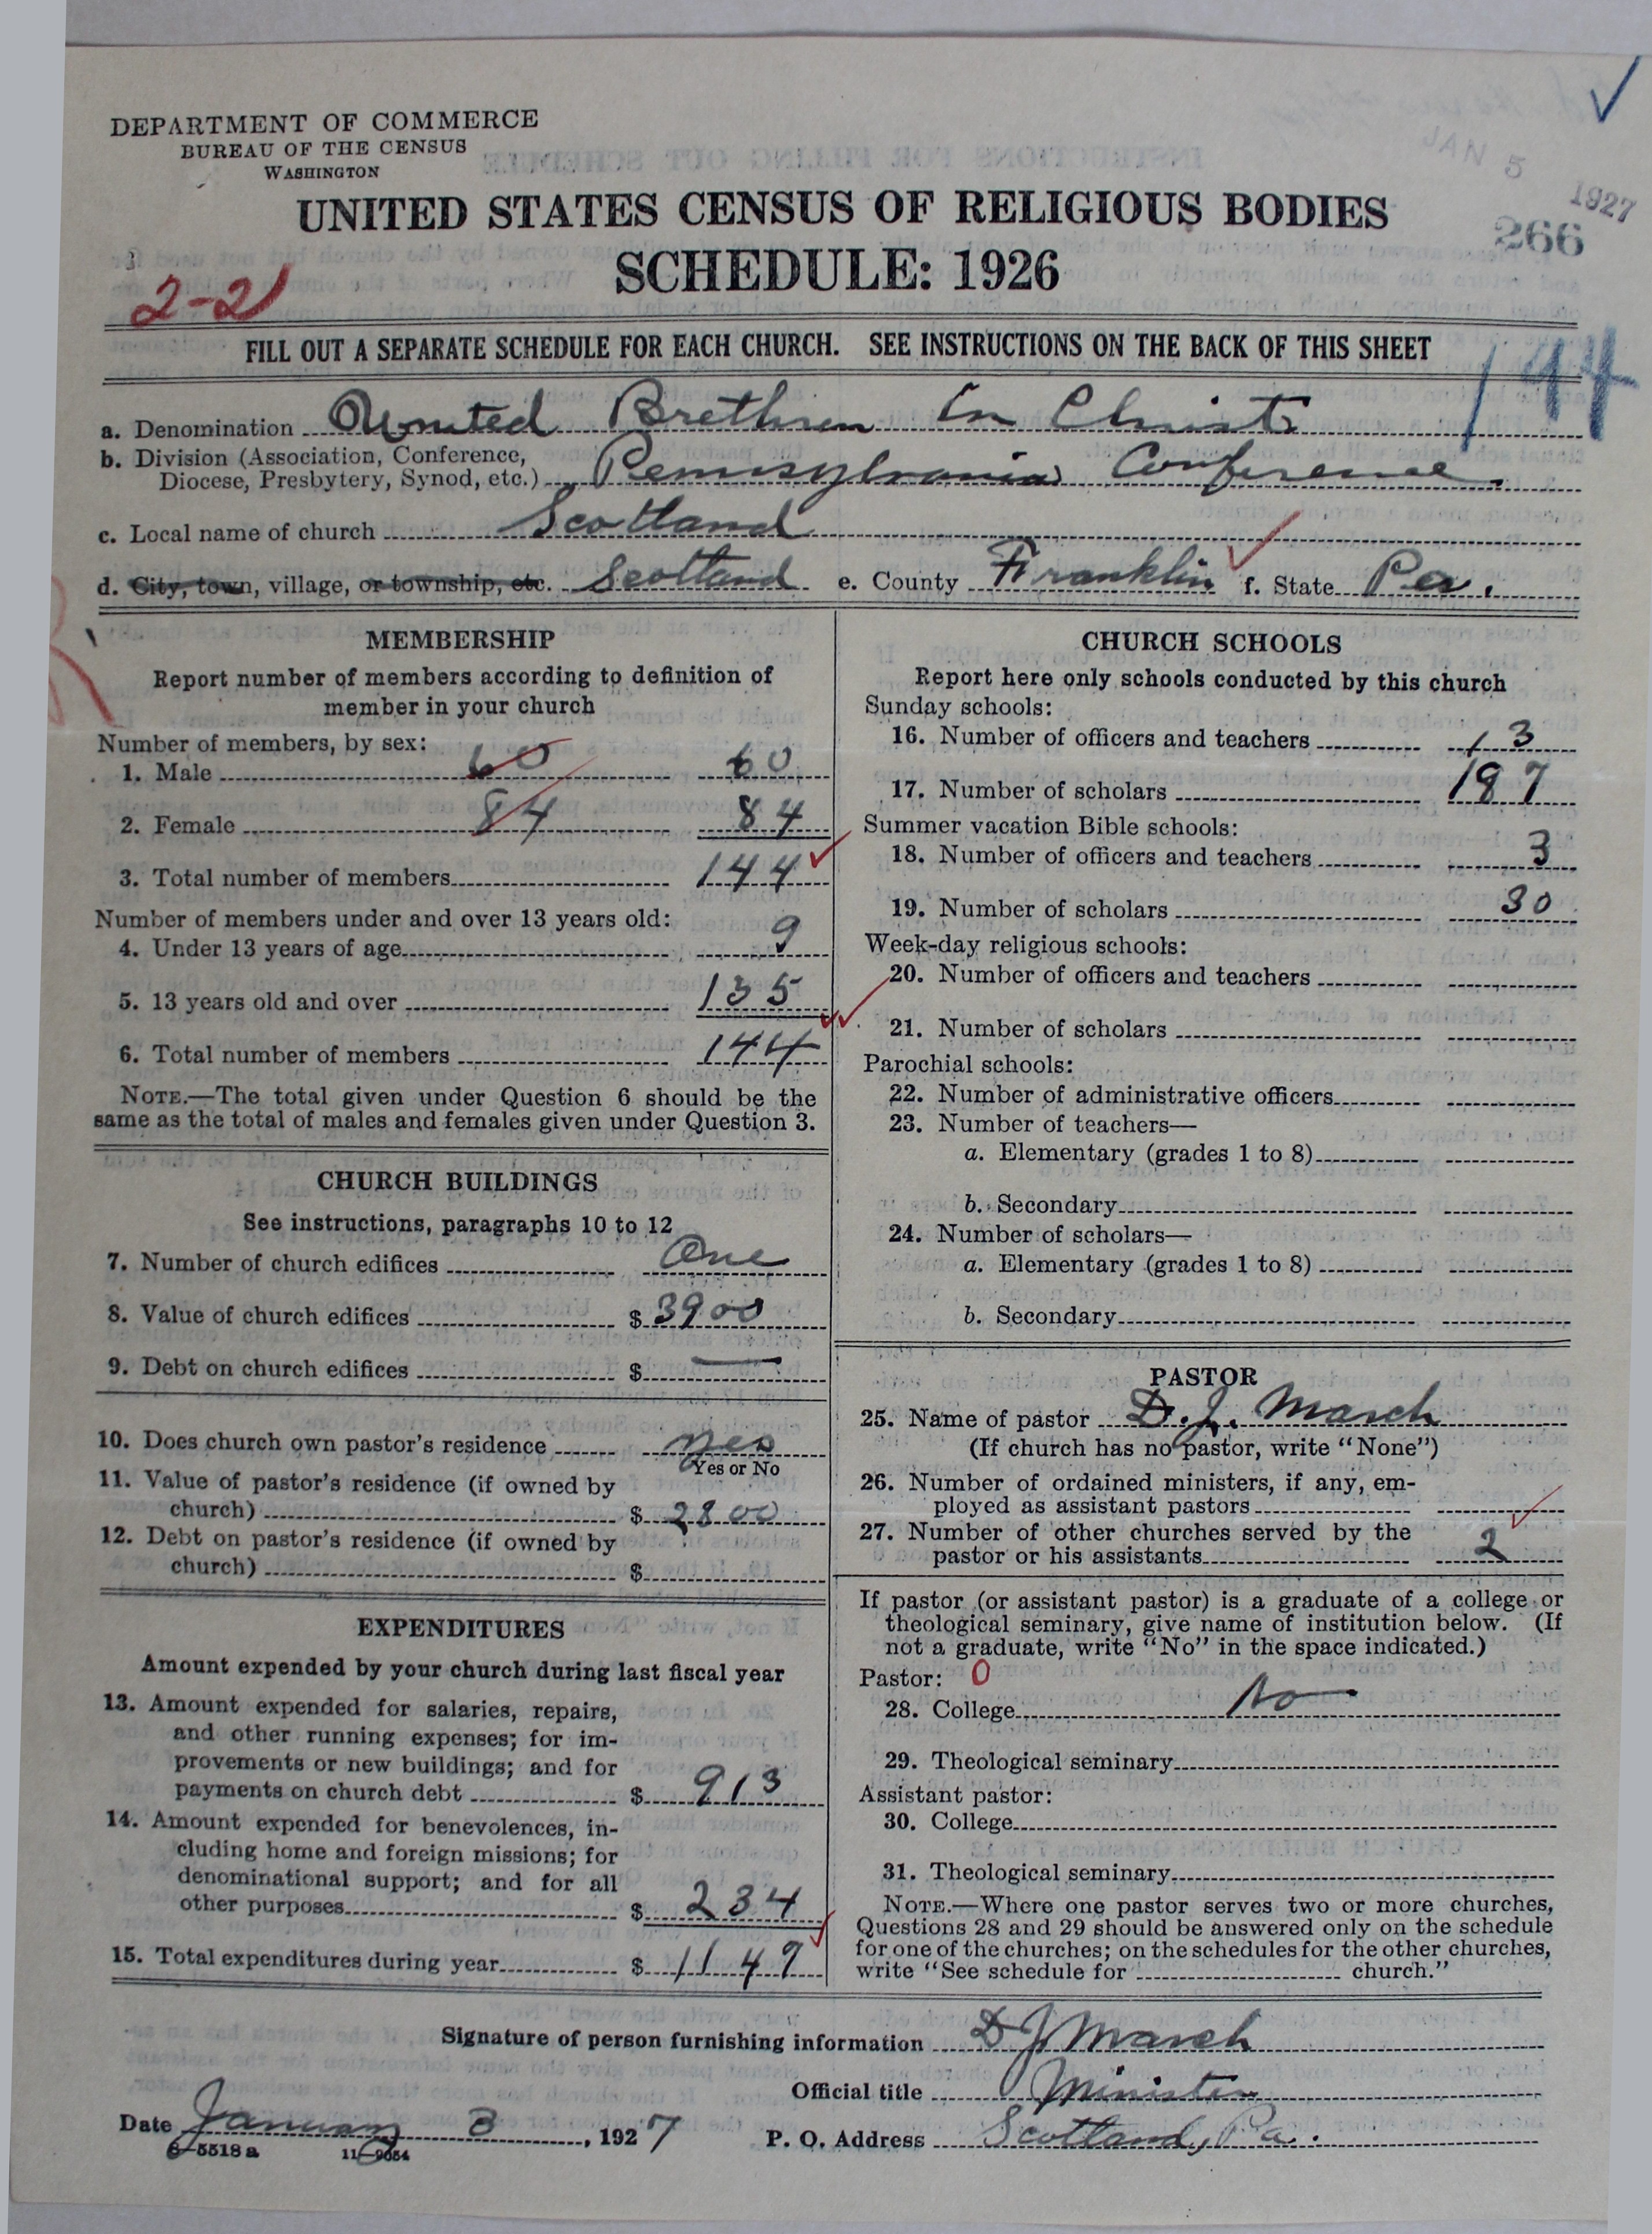 DEPARTMENT OF COMMERCE
BUREAU OF THE CENSUS
WASHINGTON
JAN 5 1927
UNITED STATES CENSUS OF RELIGIOUS BODIES
266
SCHEDULE: 1926
2-21
FILL OUT A SEPARATE SCHEDULE FOR EACH CHURCH. SEE INSTRUCTIONS ON THE BACK OF THIS SHEET
144
a. Denomination United Brethren in Christ
b. Division (Association, Conference,
Diocese, Presbytery, Synod, etc.) Pennsylvania Conference.
c. Local name of church Scotland
d. City, town, village, or township, etc. Scotland e. County Franklin f. State Pa.
MEMBERSHIP
Report number of members according to definition of
member in your church
Number of members, by sex:
1. Male 60 60
2. Female 84 84
3. Total number of members 144
Number of members under and over 13 years old:
4. Under 13 years of age 9
5. 13 years old and over 135
6. Total number of members 144
NOTE.—The total given under Question 6 should be the
same as the total of males and females given under Question 3.
CHURCH BUILDINGS
See instructions, paragraphs 10 to 12
7. Number of church edifices One
8. Value of church edifices $ 3900
9. Debt on church edifices $ —
10. Does church own pastor's residence yes
Yes or No
11. Value of pastor's residence (if owned by
church) $ 2800
12. Debt on pastor's residence (if owned by
church) $
EXPENDITURES
Amount expended by your church during last fiscal year
13. Amount expended for salaries, repairs,
and other running expenses; for im-
provements or new buildings; and for
payments on church debt $ 913
14. Amount expended for benevolences, in-
cluding home and foreign missions; for
denominational support; and for all
other purposes $ 234
15. Total expenditures during year $ 1147
CHURCH SCHOOLS
Report here only schools conducted by this church
Sunday schools:
16. Number of officers and teachers 13
17. Number of scholars 187
Summer vacation Bible schools:
18. Number of officers and teachers 3
19. Number of scholars 30
Week-day religious schools:
20. Number of officers and teachers
21. Number of scholars
Parochial schools:
22. Number of administrative officers
23. Number of teachers—
a. Elementary (grades 1 to 8)
b. Secondary
24. Number of scholars—
a. Elementary (grades 1 to 8)
b. Secondary
PASTOR
25. Name of pastor D. J. March
(If church has no pastor, write "None")
26. Number of ordained ministers, if any, em-
ployed as assistant pastors
27. Number of other churches served by the
pastor or his assistants 2
If pastor (or assistant pastor) is a graduate of a college or
theological seminary, give name of institution below. (If
not a graduate, write "No" in the space indicated.)
Pastor: 0
28. College No
29. Theological seminary
Assistant pastor:
30. College
31. Theological seminary
NOTE.—Where one pastor serves two or more churches,
Questions 28 and 29 should be answered only on the schedule
for one of the churches; on the schedules for the other churches,
write "See schedule for church."
Signature of person furnishing information D J March
Official title Minister
Date January 3, 1927 P. O. Address Scotland, Pa.
8-5518a 11-9054